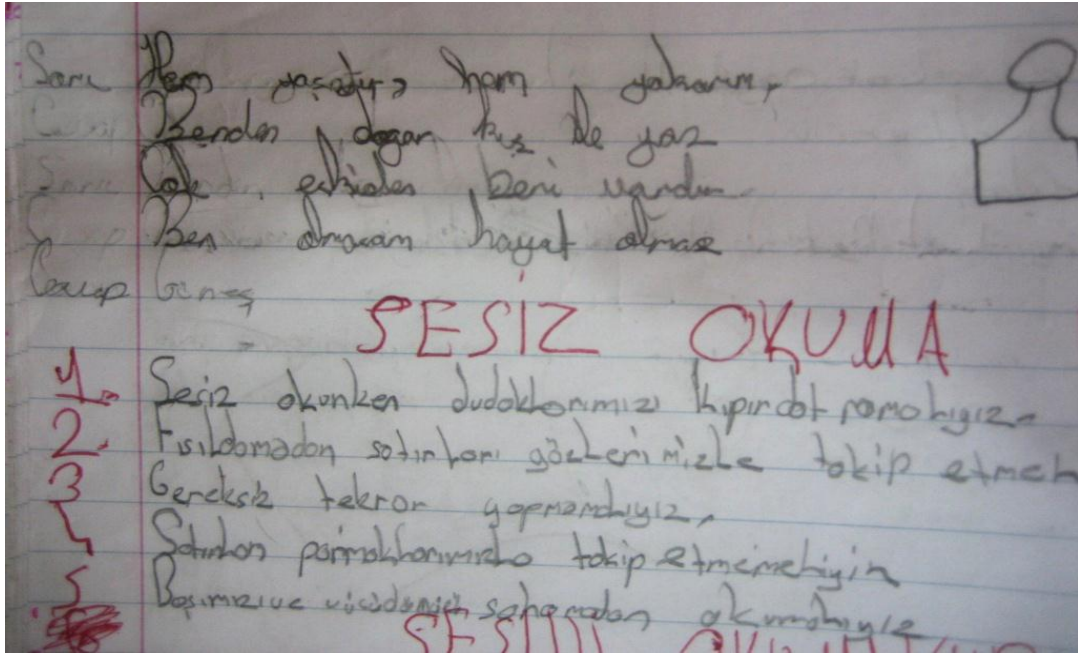 Soru Hem yaşatır, ham yakarım,
Benden doğar kış ile yaz
Çok eskiden beni vardım
Ben olmasam hayat olmaz
Cevap Güneş
SESİZ OKUMA
1. Sesiz okunken dudoklarımızı kıpırdatmamalıyız.
2. Fısıldamadan satırları gözlerimizle takip etmeli
3 Gereksiz tekrar yapmamalıyız,
Satırları parmaklarımızla takip etmemeliyiz
5 Başımızı ve vücudumuzu sallamadan okumalıyız
SESLİ OKUMA